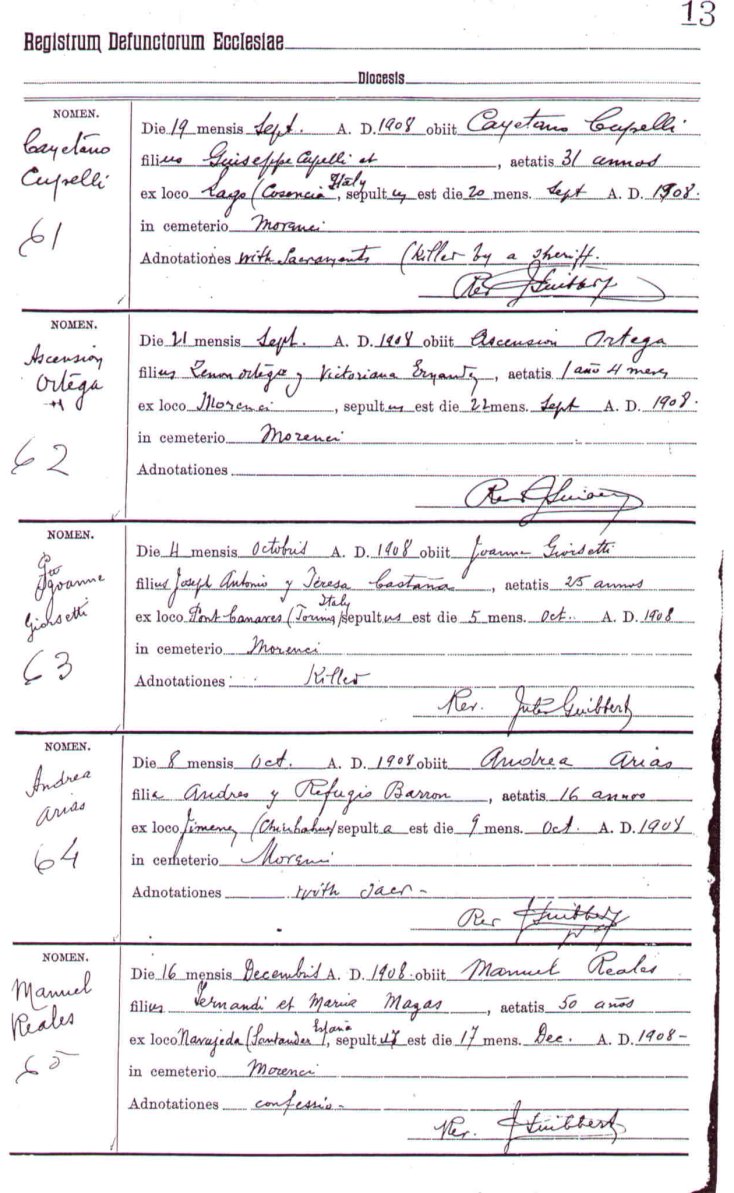 13
Registrum Defunctorum Ecclesiae
Diocesis
NOMEN.
Cayetano
Cupelli
61
Die 19 mensis Sept. A. D. 1908 obiit Cayetano Cupelli
filius Guiseppe Cupelli et , aetatis 31 annos
ex loco Lago (Cosencia Italy, sepultus est die 20 mens. Sept A. D. 1908.
in cemeterio Morenci
Adnotationes with Sacraments (killed by a sheriff.
Rev J Guibbert
NOMEN.
Ascension
Ortega
62
Die 21 mensis Sept. A. D. 1908 obiit Ascension Ortega
filius Zenon Ortega y Victoriana , aetatis 1 año 4 meses
ex loco Morenci , sepultus est die 22 mens. Sept A. D. 1908.
in cemeterio Morenci
Adnotationes
Rev J
NOMEN.
Joanne
Giorsetti
63
Die 4 mensis Octobris A. D. 1908 obiit Joanne Giorsetti
filius Joseph Antonio y Teresa Castaña , aetatis 25 annos
ex loco Pont Canares (Torino Italy) sepultus est die 5 mens. Oct. A. D. 1908
in cemeterio Morenci
Adnotationes Killed
Rev. Jules Guibbert
NOMEN.
Andrea
Arias
64
Die 8 mensis Oct. A. D. 1908 obiit Andrea Arias
filia Andres y Refugio Barron , aetatis 16 annos
ex loco Jimenez (Chihuahua) sepulta est die 9 mens. Oct. A. D. 1908
in cemeterio Morenci
Adnotationes with Sacr-
Rev J Guibbert
NOMEN.
Manuel
Reales
65
Die 16 mensis Decembris A. D. 1908. obiit Manuel Reales
filius Fernandi et Maria Mazas , aetatis 50 años
ex loco Navajeda (Santander España), sepultus est die 17 mens. Dec. A. D. 1908-
in cemeterio Morenci
Adnotationes confessio-
Rev. J Guibbert